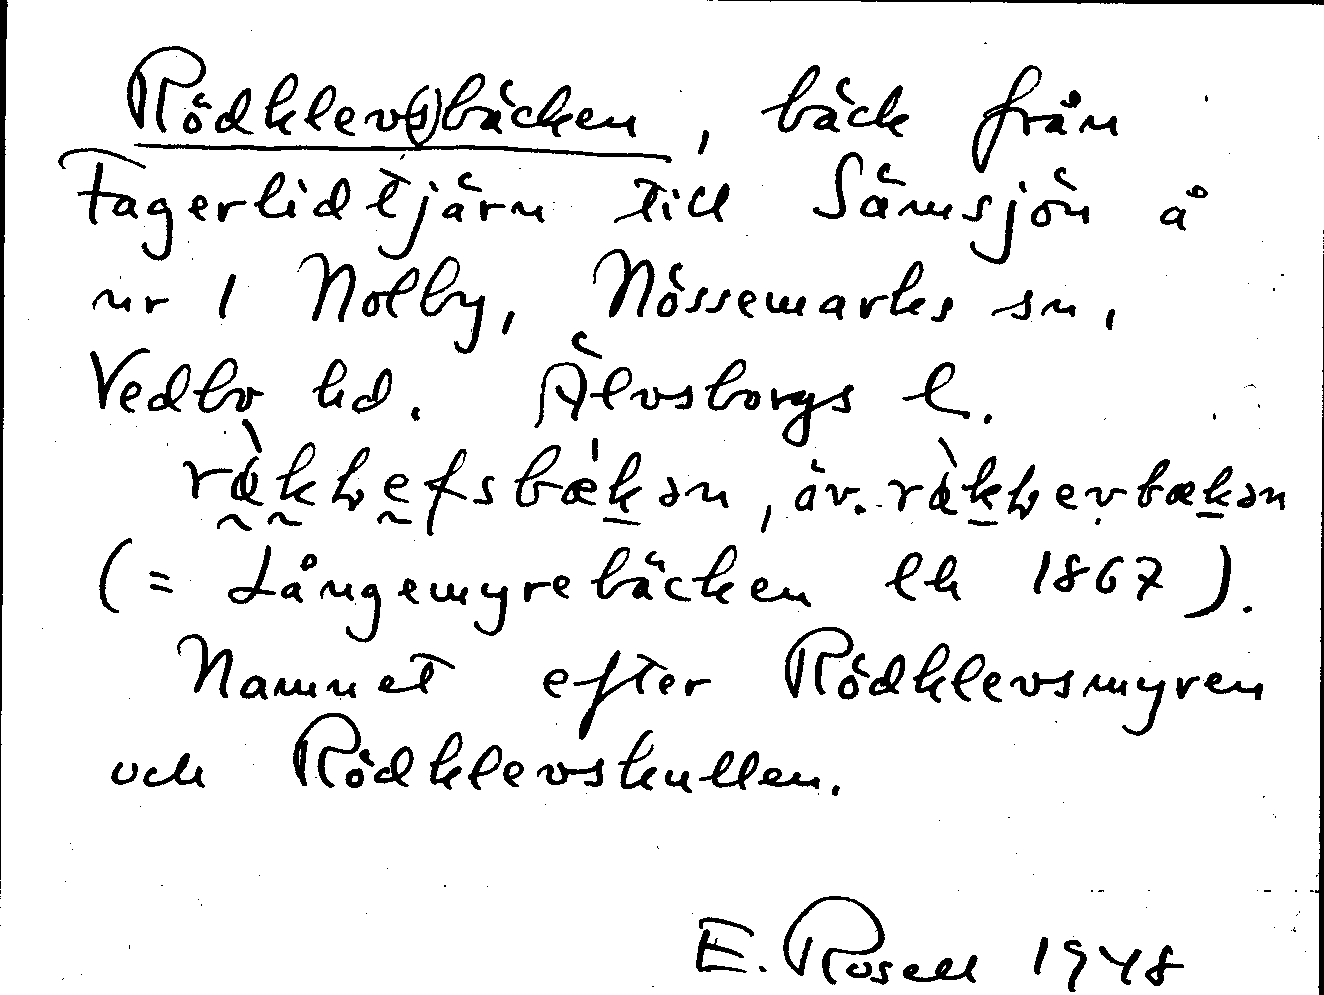 Rödklev(s)bäcken, bäck från
Fagerlidtjärn till Sämsjön å
nr 1 Nolby, Nössemarks sn,
Vedbo hd. Älvsborgs l.
äv.
(= Långemyrebäcken lk 1867).
Namnet efter Rödklevsmyren
och Rödklevskullen.
E. Rosell 1948